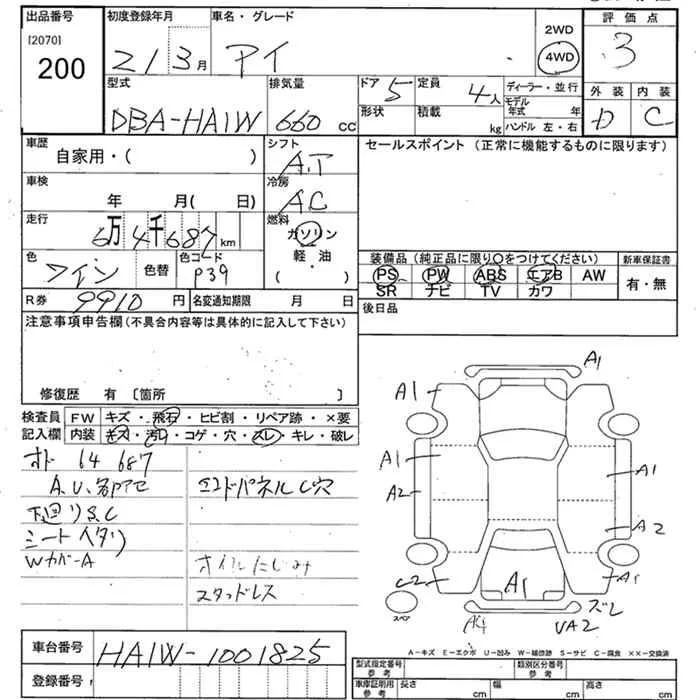 出品番号 初度登録年月 車名・グレード 評価点
[2070]
200 21 3月 アイ 2WD 4WD 3
外装 内装
D C
型式 排気量 ドア 5 定員 4人 ディーラー・並行
DBA-HA1W 660 cc 形状 積載 kg モデル年式 年
ハンドル 左・右
車歴 シフト セールスポイント (正常に機能するものに限ります)
自家用・( ) A.T
車検 冷房
年 月( 日) AC
走行 燃料
6万4千687km ガソリン
色 色コード 軽油
ワイン 色替 P39 ( )
装備品(純正品に限り〇をつけてください) 新車保証書
PS PW ABS エアB AW 有・無
SR ナビ TV カワ
R券 9910円 名変通知期限 月 日
後日品
注意事項申告欄(不具合内容等は具体的に記入して下さい)
修復歴 有 〔箇所 〕
検査員 FW キズ・飛石・ヒビ割・リペア跡・×要
記入欄 内装 キズ・汚れ・コゲ・穴・スレ・キレ・破レ
オド 64 687
A.U.名アセ
エンドパネルC穴
下廻りS.C
シートヘタリ
Wカバ-A オイルにじみ
スタッドレス
A1
A1
A1 A1
A2
A2
C2 A1 A1
スペア
ズレ
UA2
A-キズ E-エクボ U-凹み W-補修跡 S-サビ C-腐食 ××-交換済
車台番号 HA1W-1001825
登録番号
型式指定番号 参考 類別区分番号 参考
車庫証明用 参考 長さ cm 幅 cm 高さ cm